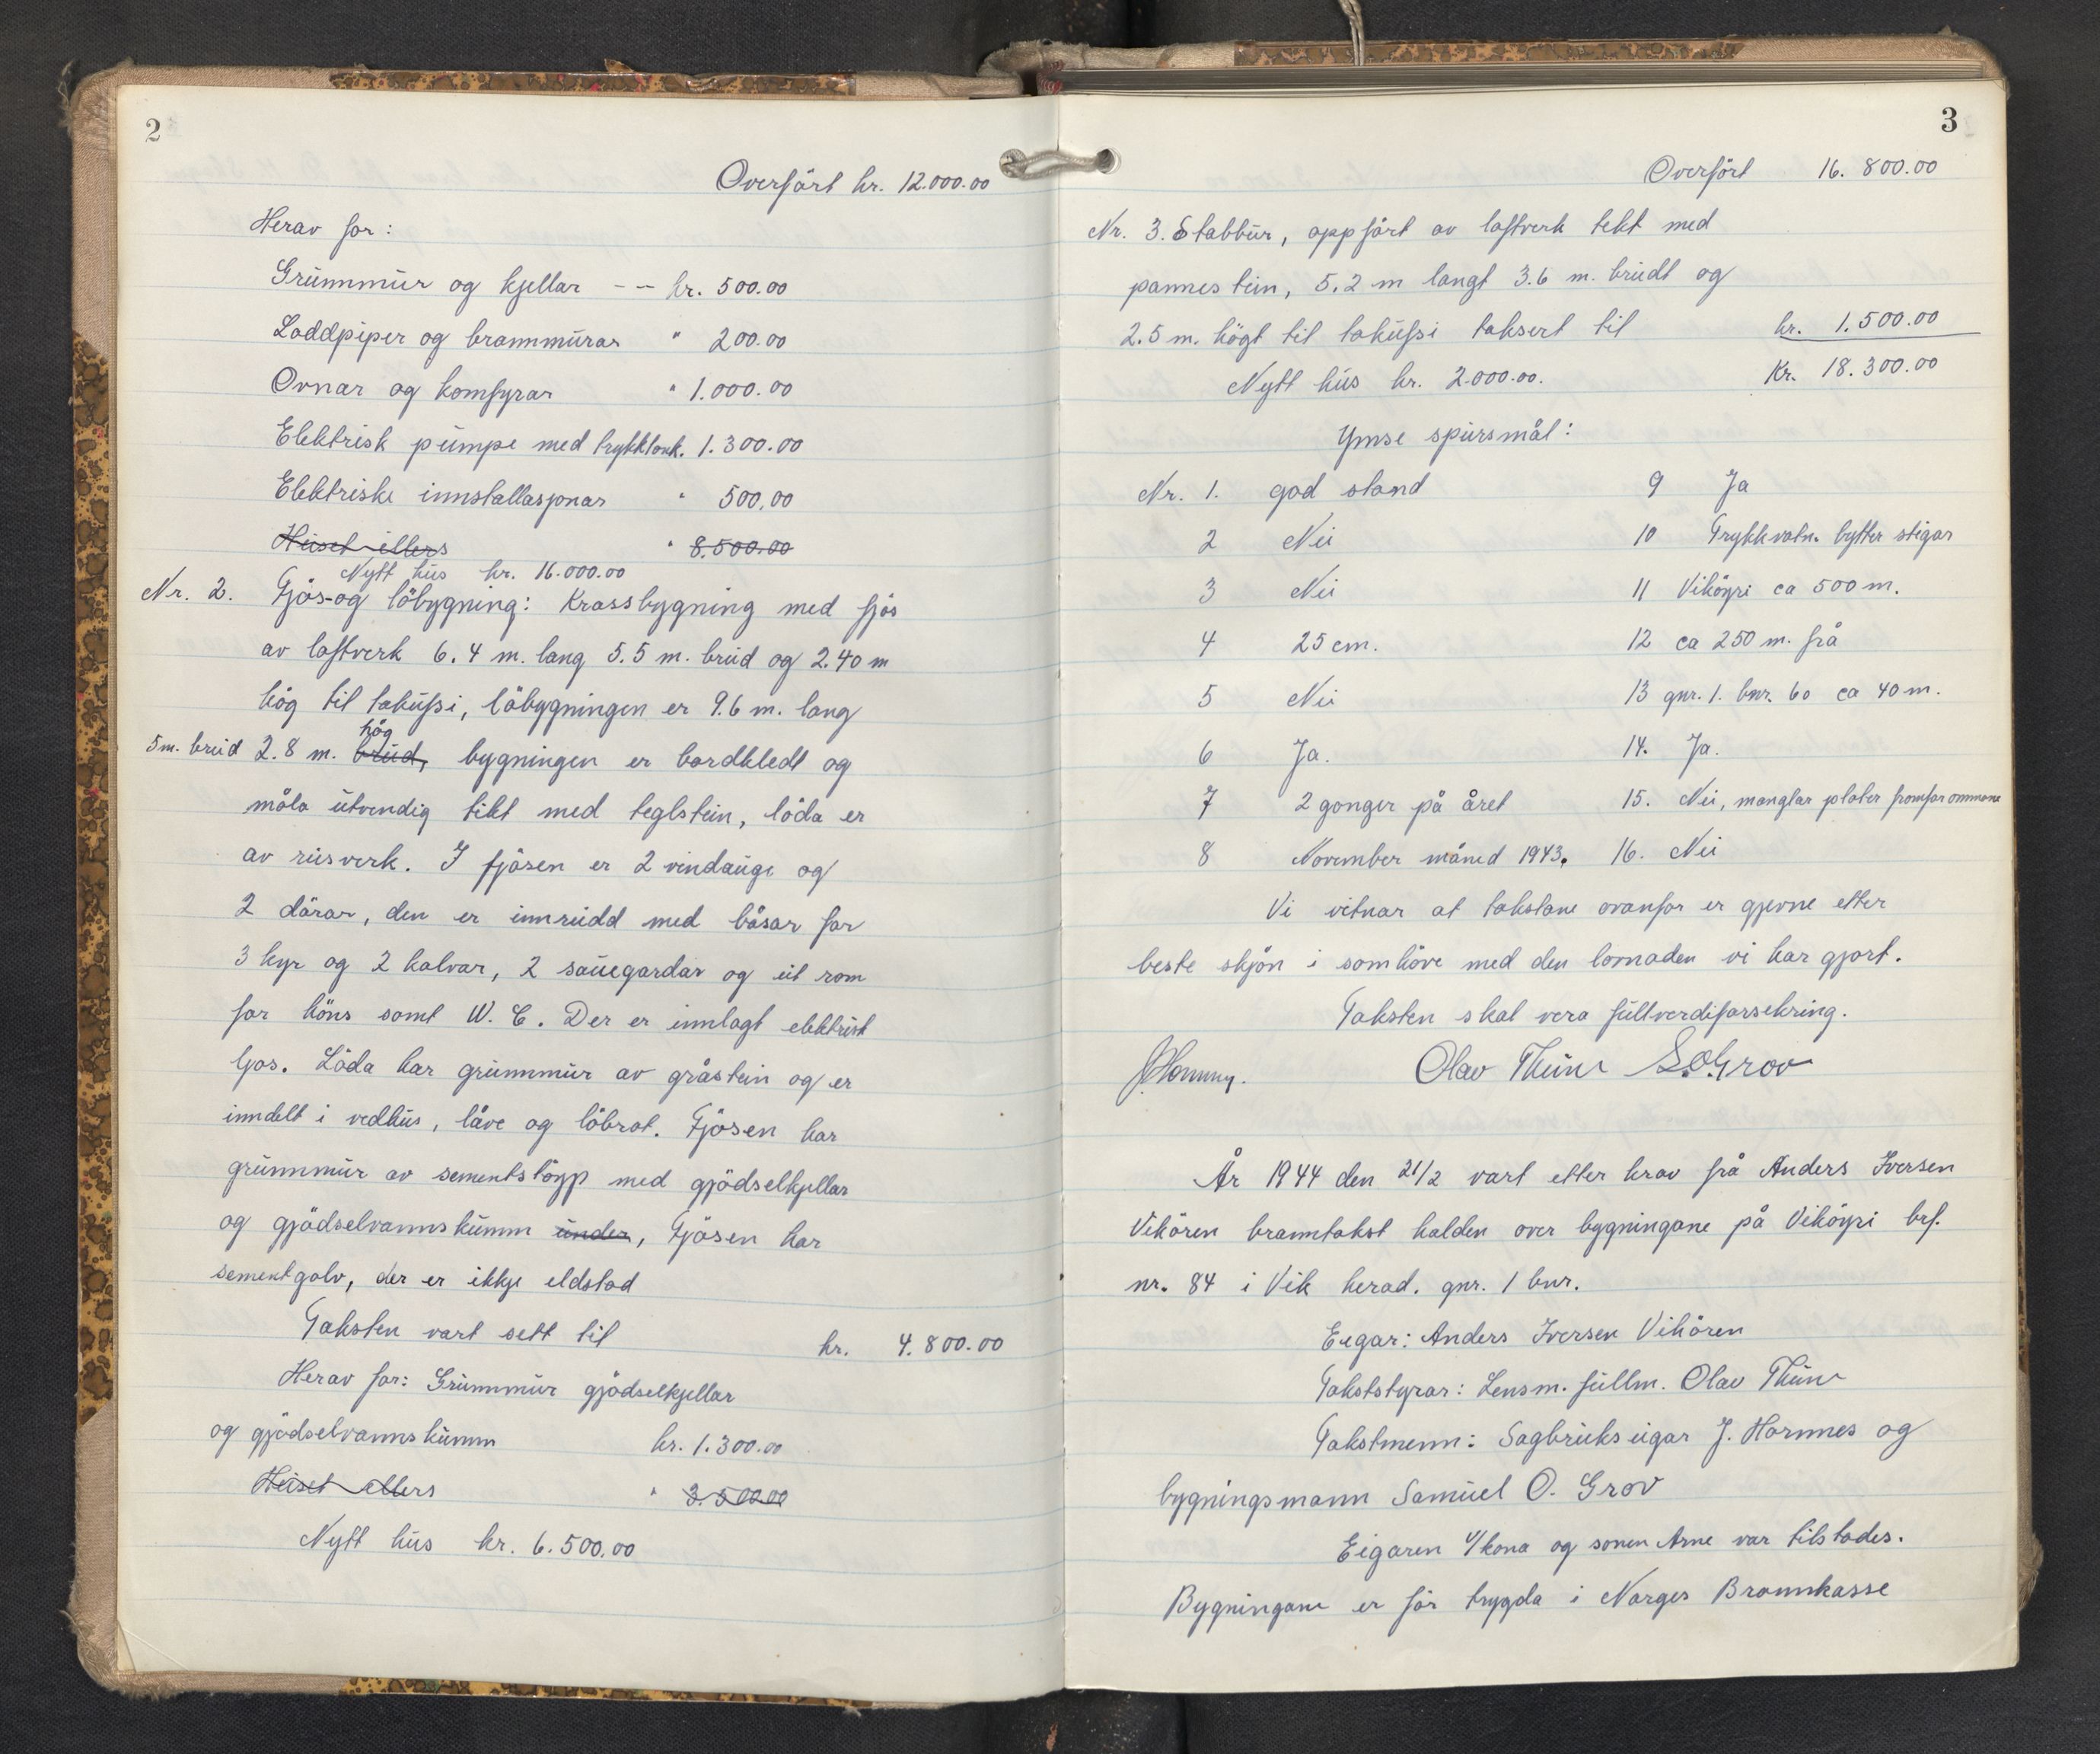 2
Overfört kr. 12.000.00
Herav for:
Grunnmur og kjellar -- kr. 500.00
Loddpiper og brannmurar " 200.00
Ovnar og komfyrar " 1.000.00
Elektrisk pumpe med trykktank. 1.300.00
Elektriske innstallasjonar " 500.00
Huset ellers " 8.500.00
Nytt hus kr. 16.000.00
Nr. 2. Fjös-og löbygning: Krossbygning med fjös
av loftverk 6.4 m. lang 5.5 m. breid og 2.40 m
hög til takufsi, löbygningen er 9.6 m. lang
hög
5m. breid 2.8 m. breid, bygningen er bordkledt og
måla utvendig tekt med teglstein, löda er
av reisverk. I fjösen er 2 vindauge og
2 dörar, den er innreidd med båsar for
3 kyr og 2 kalvar, 2 sauegardar og eit rom
for höns samt W. C. Der er innlagt elektrisk
ljos. Löda har grunnmur av gråstein og er
inndelt i vedhus, låve og löbrot. Fjösen har
grunnmur av sementstöyp med gjödselkjellar
og gjödselvannskumm under, Fjösen har
sementgolv, der er ikkje eldstad
Taksten vart sett til kr. 4.800.00
Herav for: Grunnmur gjödselkjellar
og gjödselvannskumm kr. 1.300.00
Huset ellers " 3.500.00
Nytt hus kr. 6.500.00
3
Overfört 16.800.00
Nr. 3. Stabbur, oppfört av loftverk tekt med
pannestein, 5.2 m langt 3.6 m. breidt og
2.5 m. högt til takufsi taksert til kr. 1.500.00
Nytt hus kr. 2.000.00. Kr. 18.300.00
Ymse spursmål:
Nr. 1. god stand 9 Ja
2 Nei 10 Trykkvatn. bytter stigar
3 Nei 11 Viköyri ca 500 m.
4 25 cm. 12 ca 250 m. frå
5 Nei 13 gnr. 1. bnr. 60 ca 40 m.
6 Ja. 14. Ja.
7 2 gonger på året 15. Nei, manglar plater framfor omnane
8 November måned 1943. 16. Nei
Vi vitnar at takstane ovanfor er gjevne etter
beste skjön i samhöve med den lovnaden vi har gjort.
Taksten skal vera fullverdiforsekring.
Olav Thue S.O.Grov
År 1944 den 21/2 vart etter krav frå Anders Iversen
Vikören branntakst halden over bygningane på Viköyri brf.
nr. 84 i Vik herad. gnr. 1 bnr.
Eigar: Anders Iversen Vikören
Takststyrar: Lensm. fullm. Olav Thue
Takstmenn: Sagbrukseigar J. Hamnes og
bygningsmann Samuel O. Grov
Eigaren v/kona og sonen Arne var tilstades.
Bygningane er för trygda i Norges Brannkasse